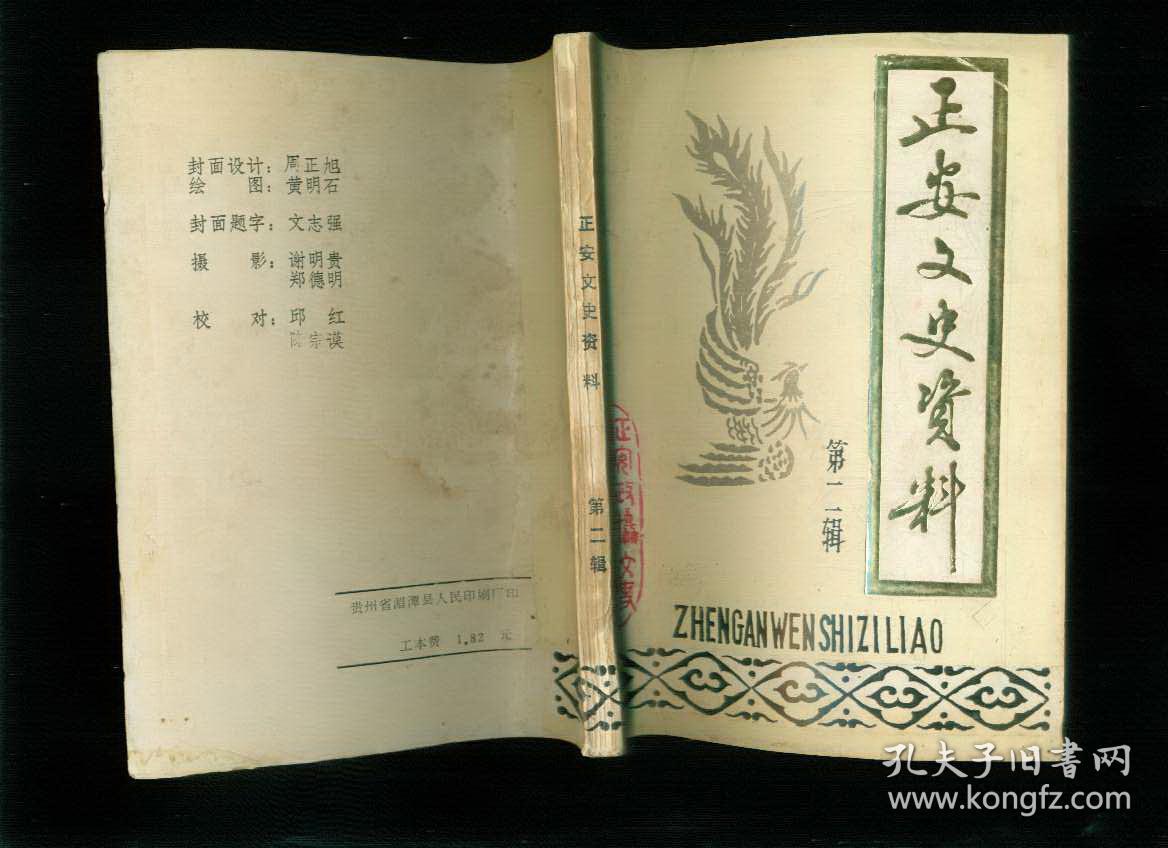 封面设计：周正旭
绘　　图：黄明石
封面题字：文志强
摄　　影：谢明贵
郑德明
校　　对：邱　红
陈宗谟
贵州省湄潭县人民印刷厂印
工本费　1.82　元
正安文史资料　第二辑
正安文史資料
第二辑
ZHENGANWENSHIZILIAO
孔夫子旧书网
www.kongfz.com